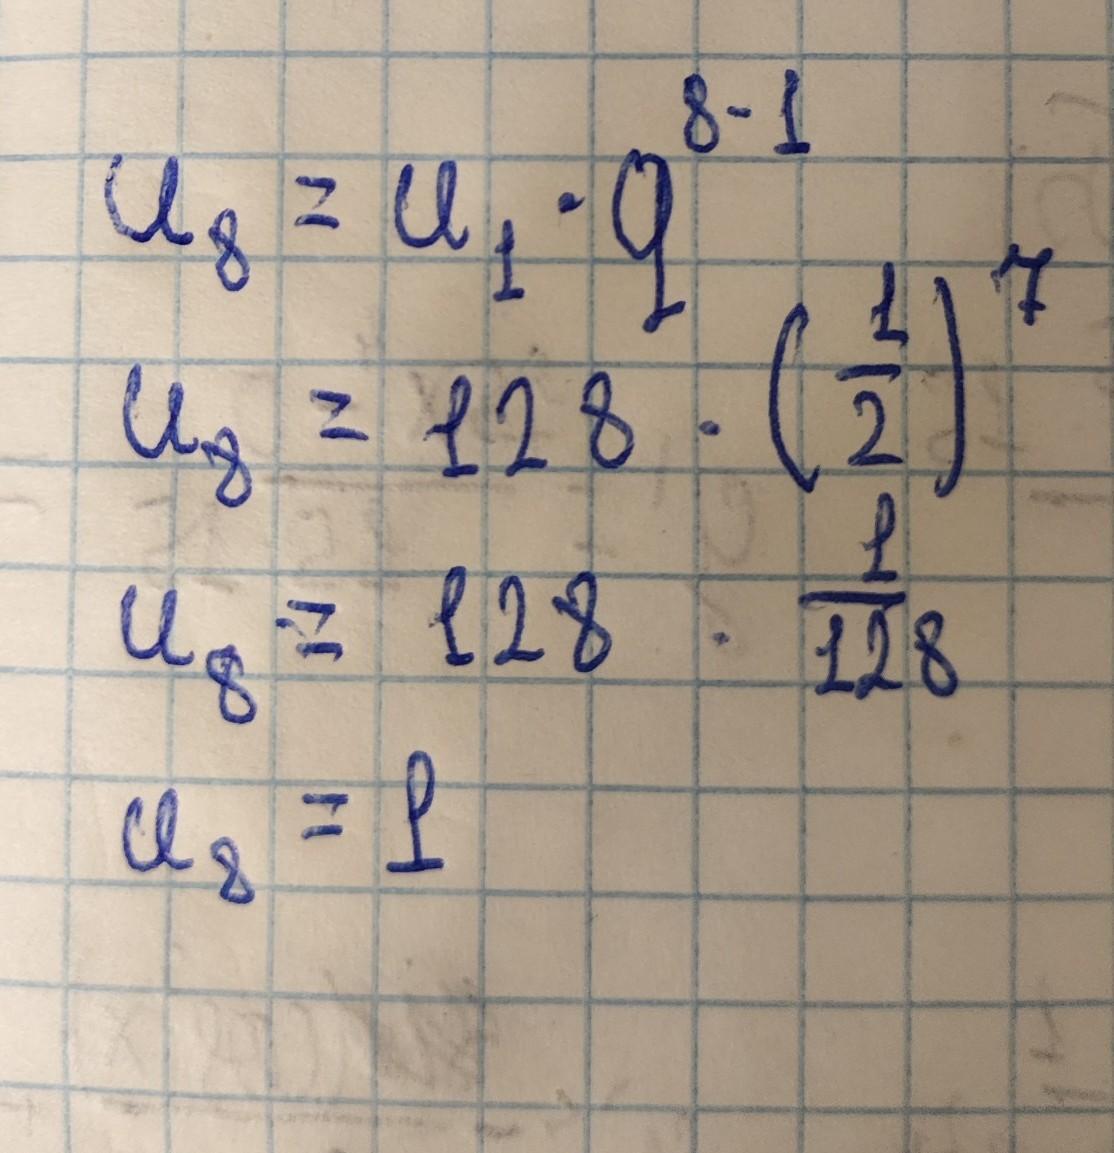 u₈ = u₁ · q⁸⁻¹
u₈ = 128 · (1/2)⁷
u₈ = 128 · 1/128
u₈ = 1